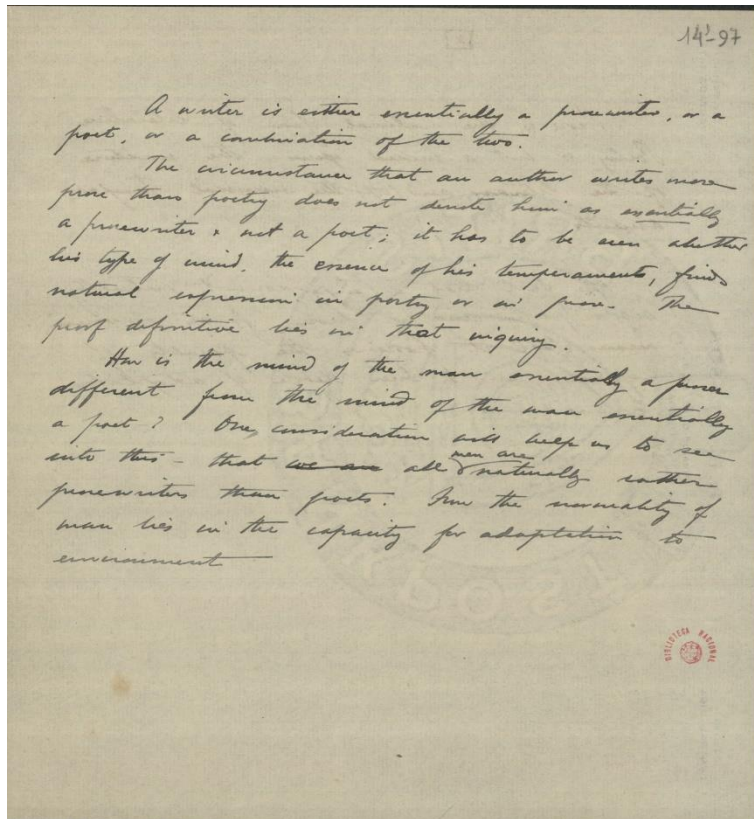 14¹-97
A writer is either essentially a prosewriter, or a
poet, or a combination of the two.
The circumstance that an author writes more
prose than poetry does not denote him as essentially
a prosewriter & not a poet; it has to be seen whether
his type of mind, the essence of his temperament, finds
natural expression in poetry or in prose. The
proof definitive lies in that inquiry.
How is the mind of the man essentially a proser
different from the mind of the man essentially
a poet? One consideration will help us to see
into this — that we are all men are naturally rather
prosewriters than poets. For the normality of
man lies in the capacity for adaptation to
environment
BIBLIOTECA NACIONAL